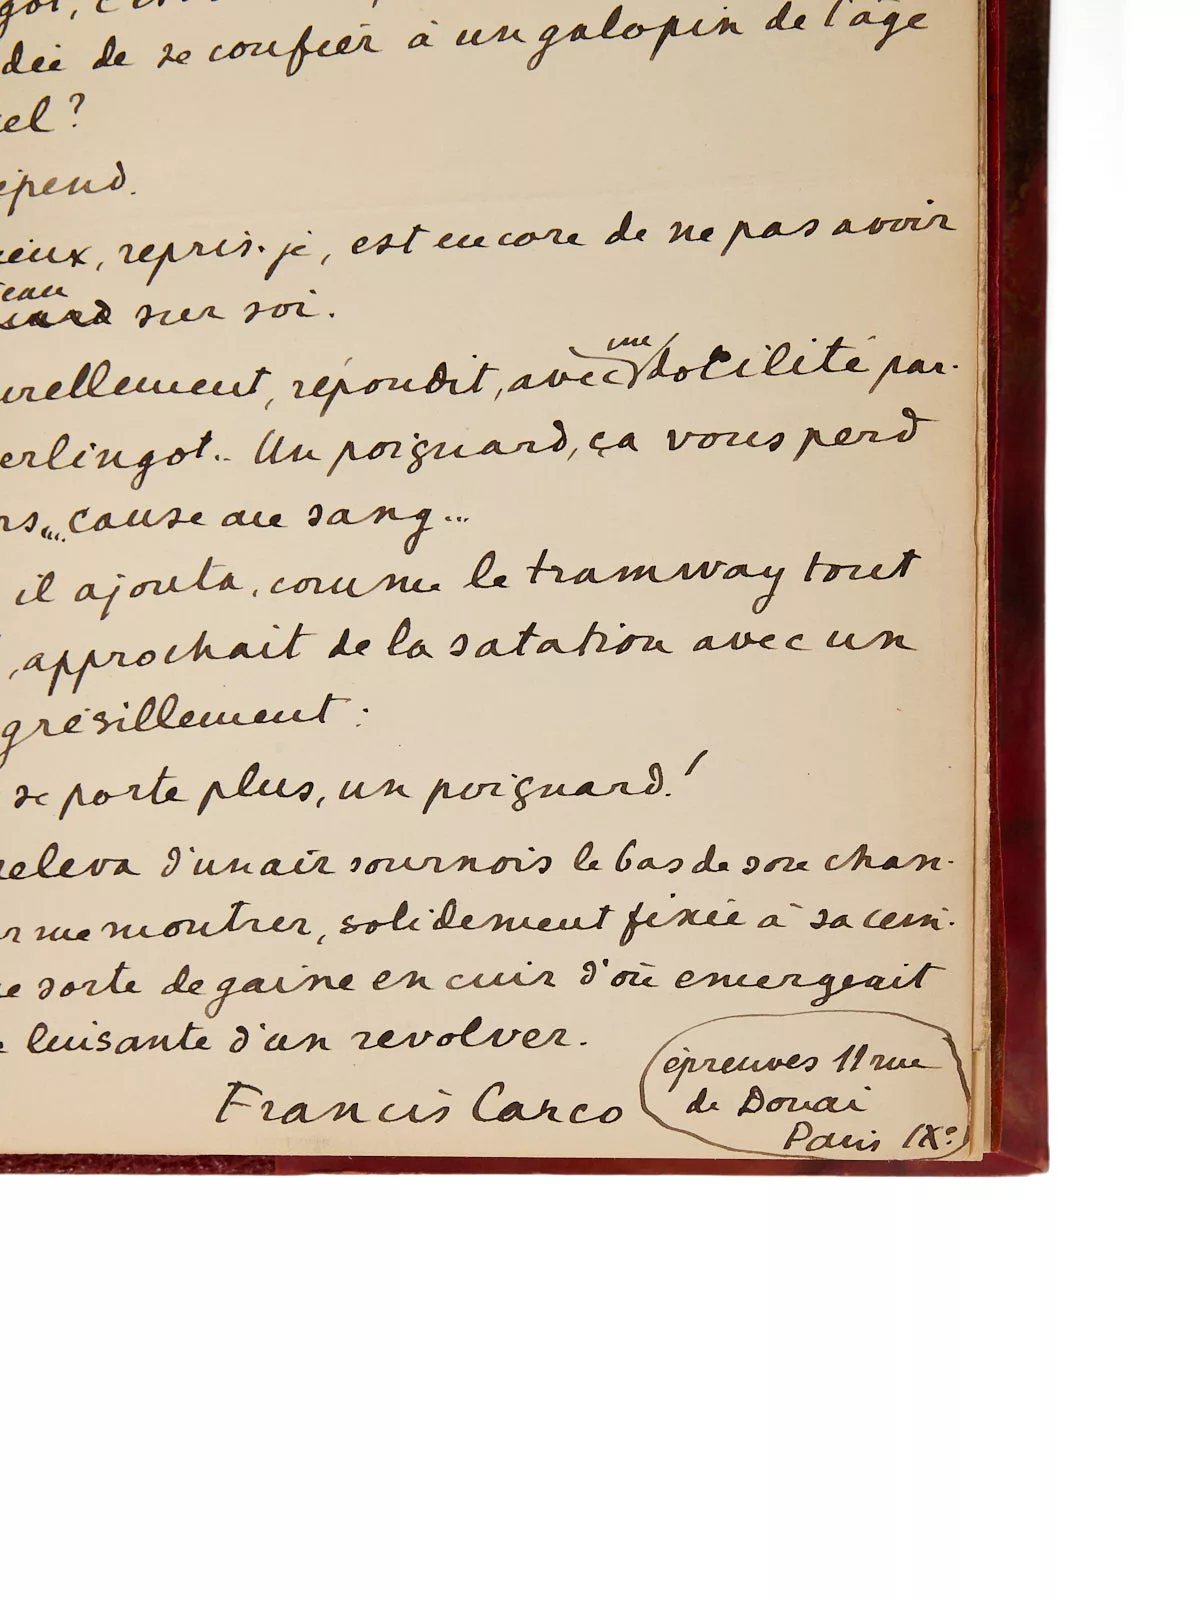 dée de se confier à un galopin de l'âge
el ?
épend.
ieux, repris-je, est encore de ne pas avoir
eau
sur soi.
une
urellement, répondit, avec docilité par-
erlingot.. Un poignard, ça vous perd
rs... cause au sang...
il ajouta, comme le tramway tout
, approchait de la satation avec un
grésillement :
se porte plus, un poignard !
releva d'un air sournois le bas de son chan-
r me montrer, solidement fixée à sa cein-
e sorte de gaine en cuir d'où émergeait
luisante d'un revolver.
Francis Carco
épreuves 11 rue
de Douai
Paris IXe